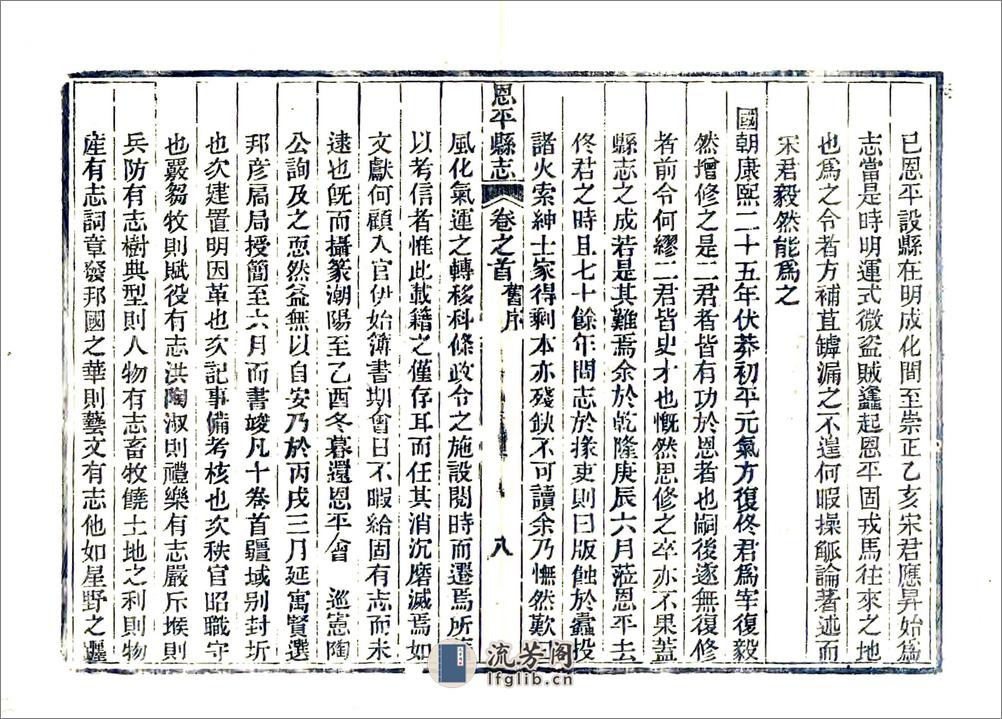 已恩平設縣在明成化間至崇正乙亥宋君應昇始爲
志當是時明運式微盜賊蠭起恩平固戎馬往來之地
也爲之令者方補苴罅漏之不遑何暇操觚論著述而
宋君毅然能爲之
國朝康熙二十五年伏莽初平元氣方復佟君爲宰復毅
然增修之是二君者皆有功於恩者也嗣後遂無復修
者前令何繆二君皆史才也慨然思修之卒亦不果蓋
縣志之成若是其難焉余於乾隆庚辰六月蒞恩平去
佟君之時且七十餘年問志於掾吏則曰版蝕於蠹投
諸火索紳士家得剩本亦殘缺不可讀余乃憮然歎曰
恩平縣志 卷之首 舊序 八
風化氣運之轉移科條政令之施設閱時而遷焉所
以考信者惟此載籍之僅存耳而任其消沉磨滅焉如
文獻何顧入官伊始簿書期會日不暇給固有志而未
逮也旣而攝篆潮陽至乙酉冬暮還恩平會 巡憲陶
公詢及之恧然益無以自安乃於丙戌三月延寓賢選
邦彥局局授簡至六月而書竣凡十卷首疆域别封圻
也次建置明因革也次記事備考核也次秩官昭職守
也覈芻牧則賦役有志洪陶淑則禮樂有志嚴斥堠則
兵防有志樹典型則人物有志畜牧饒土地之利則物
産有志詞章發邦國之華則藝文有志他如星野之躔
流芳阁
lfglib.cn